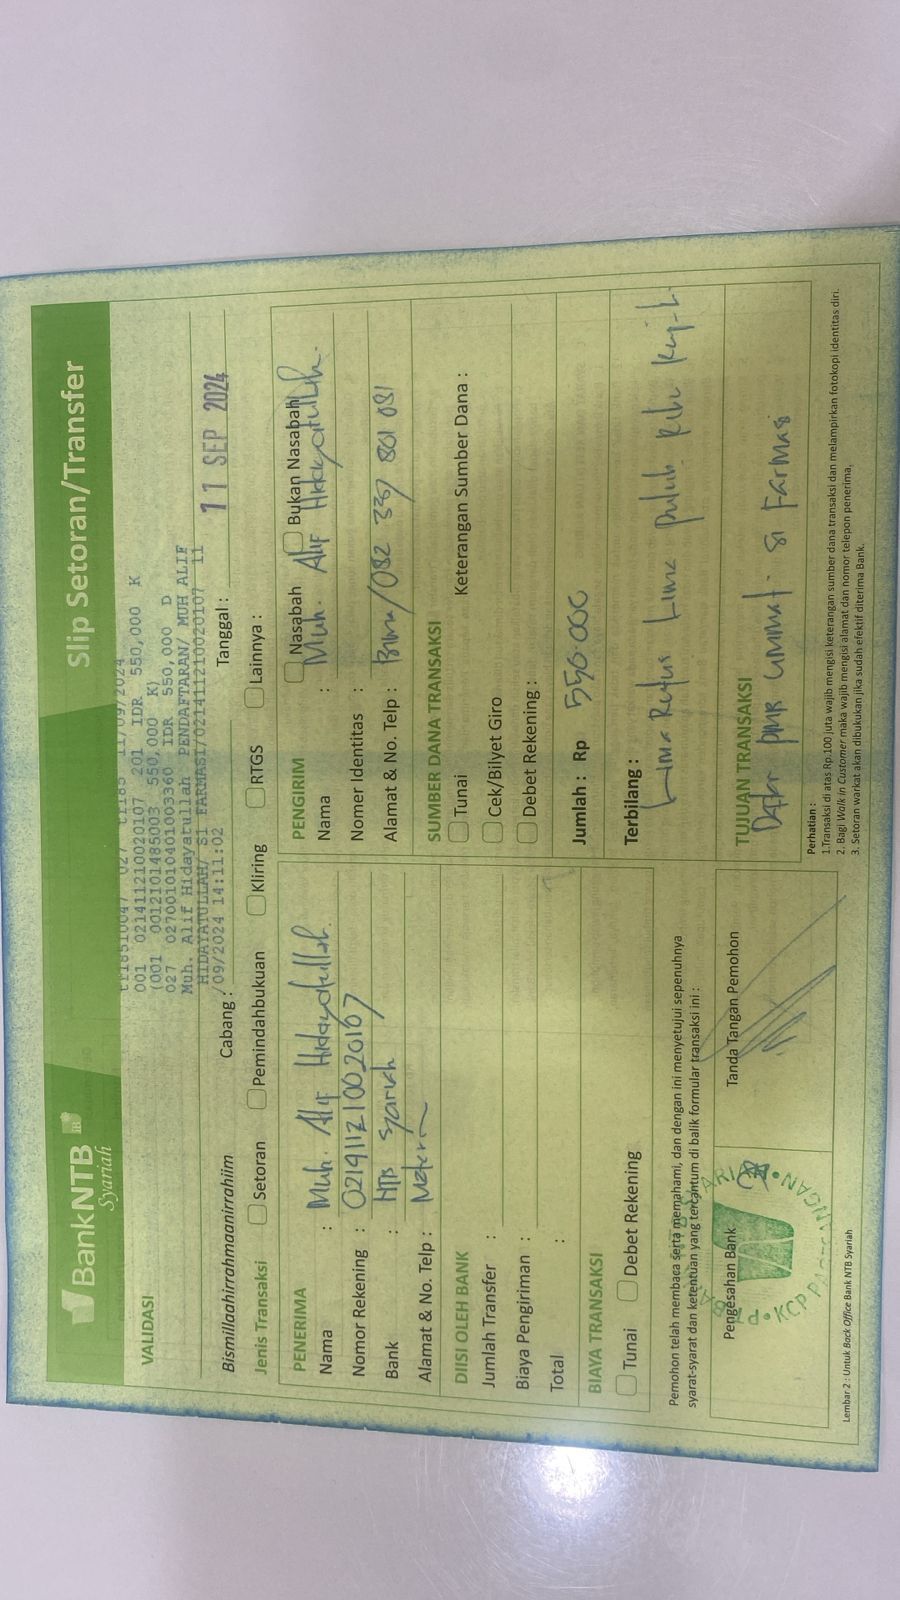 BankNTB iB
Syariah
Slip Setoran/Transfer
VALIDASI
11/09/2024
001 0214112100201​07 201 IDR 550,000 K
(001 0012101485003 550,000 K)
027 0270010401003360 IDR 550,000 D
Muh. Alif Hidayatullah PENDAFTARAN/ MUH ALIF
HIDAYATULLAH/ S1 FARMASI/021411210020107 11
/09/2024 14:11:02
Bismillaahirrahmaanirrahiim
Cabang :
Tanggal : 11 SEP 2024
Jenis Transaksi
Setoran
Pemindahbukuan
Kliring
RTGS
Lainnya :
PENERIMA
Nama : Muh. Alif Hidayatullah.
Nomor Rekening :
Bank : NTB Syariah
Alamat & No. Telp : Mataram
DIISI OLEH BANK
Jumlah Transfer :
Biaya Pengiriman :
Total :
BIAYA TRANSAKSI
Tunai
Debet Rekening
Pemohon telah membaca serta memahami, dan dengan ini menyetujui sepenuhnya
syarat-syarat dan ketentuan yang tercantum di balik formular transaksi ini :
Pengesahan Bank
Tanda Tangan Pemohon
PENGIRIM
Nasabah
Bukan Nasabah
Nama : Muh. Alif Hidayatullah.
Nomer Identitas :
Alamat & No. Telp : Bima/082 337 801 081
SUMBER DANA TRANSAKSI
Tunai
Keterangan Sumber Dana :
Cek/Bilyet Giro
Debet Rekening :
Jumlah : Rp 550.000
Terbilang :
Lima Ratus Lima puluh Ribu
TUJUAN TRANSAKSI
PMB UMMAT. S1 Farmasi
Perhatian :
1.Transaksi di atas Rp.100 juta wajib mengisi keterangan sumber dana transaksi dan melampirkan fotokopi identitas diri.
2. Bagi Walk In Customer maka wajib mengisi alamat dan nomor telepon penerima.
3. Setoran warkat akan dibukukan jika sudah efektif diterima Bank.
Lembar 2 : Untuk Back Office Bank NTB Syariah